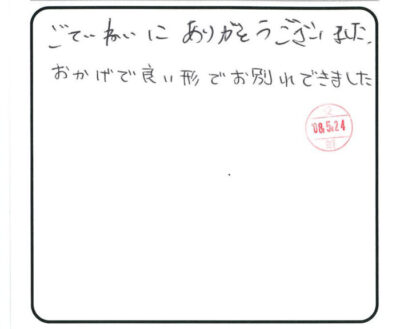 ごていねいに ありがとうございました。
おかげで良い形でお別れできました
'08.5.24